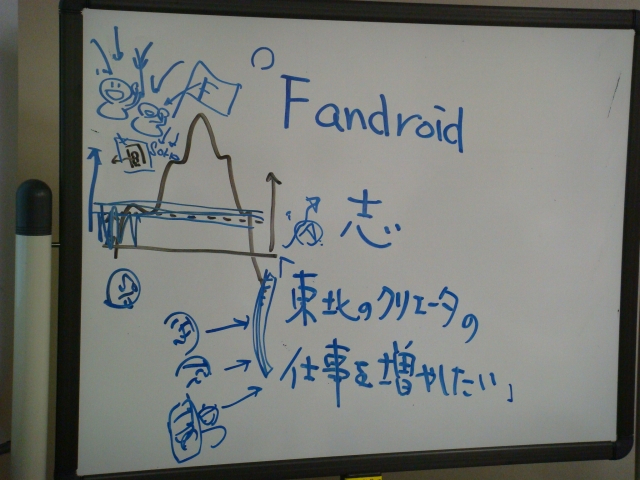 Fandroid
志
「東北のクリエータの
仕事を増やしたい」